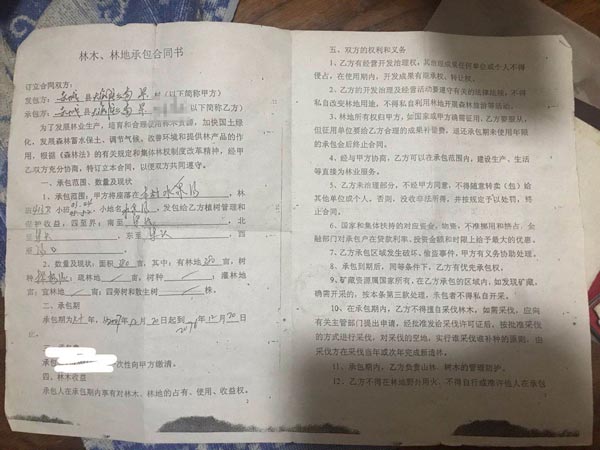 林木、林地承包合同书
订立合同双方：
发包方： 县 村（以下简称甲方）
承包方： 县 （以下简称乙方）
为了发展林业生产，培育和合理使用林木资源，加快国土绿
化，发展森林蓄水保土、调节气候、改善环境和提供林产品的作
用，根据《森林法》的有关规定和集体林权制度改革精神，经甲
乙双方充分协商，特订立本合同，以便双方共同遵守。
一、承包范围、数量及现状
1、承包范围：甲方将座落在 ，林
班 小班 小地名 ，发包给乙方植树管理和
保护收益，四至界：南至 ，北
至 ，东至 ，西
至
2、数量及现状：面积 亩，其中：有林地 亩，树
种 ，疏林地 亩；树种 ；灌林地
亩；宜林地 亩；四旁树和散生树 株。
二、承包期
承包期为 年，从 年12月20日起到 年12月20日
止。
承包 次性向甲方缴清。
四、林木收益
承包人在承包期内享有对林木、林地的占有、使用、收益权。
五、双方的权利和义务
1、乙方有经营开发治理权，其治理成果任何单位或个人不得
侵占，在使用期内，开发成果有继承权、转让权。
2、乙方的开发治理及经营活动要遵守有关的法律法规，不得
私自改变林地用途，不得私自利用林地开展森林旅游等活动。
3、林地所有权归甲方，如国家或甲方确需征用，乙方要服从，
但征用单位要给乙方合理的成果补偿费，退还承包期未使用年限
的承包金后终止合同。
4、经与甲方协商，乙方可以在承包范围内，建设生产、生活
等直接为林业服务。
5、乙方未治理部分，不经甲方同意，不得随意转卖（包）给
其他单位或个人，否则，没收非法所得，并按规定予以处罚，终
止合同。
6、国家和集体扶持的对应资金、物资，不准挪用和挤占，金
融部门对承包户在贷款利率、投资金额和时限上给予最大的优惠。
7、乙方承包区域发生破坏、偷盗事件，甲方有义务协助处理。
8、承包到期后，同等条件下，乙方有优先承包权。
9、矿藏资源属国家所有，在乙方承包的区域内，如发现矿藏，
确需开采的，按本条第三款处理，承包者不得私自开采。
10、在承包期内，乙方不得擅自采伐林木，如需采伐，应向
有关主管部门提出申请，经批准发给采伐许可证后，按批准采伐
的方式进行采伐，对采伐的空地，实行谁采伐谁补种的原则，由
采伐方在采伐当年或次年完成更新造林。
11、承包期内，乙方负责山林、树木的管理防护。
12、乙方不得在林地野外用火，不得自行或准许他人在承包